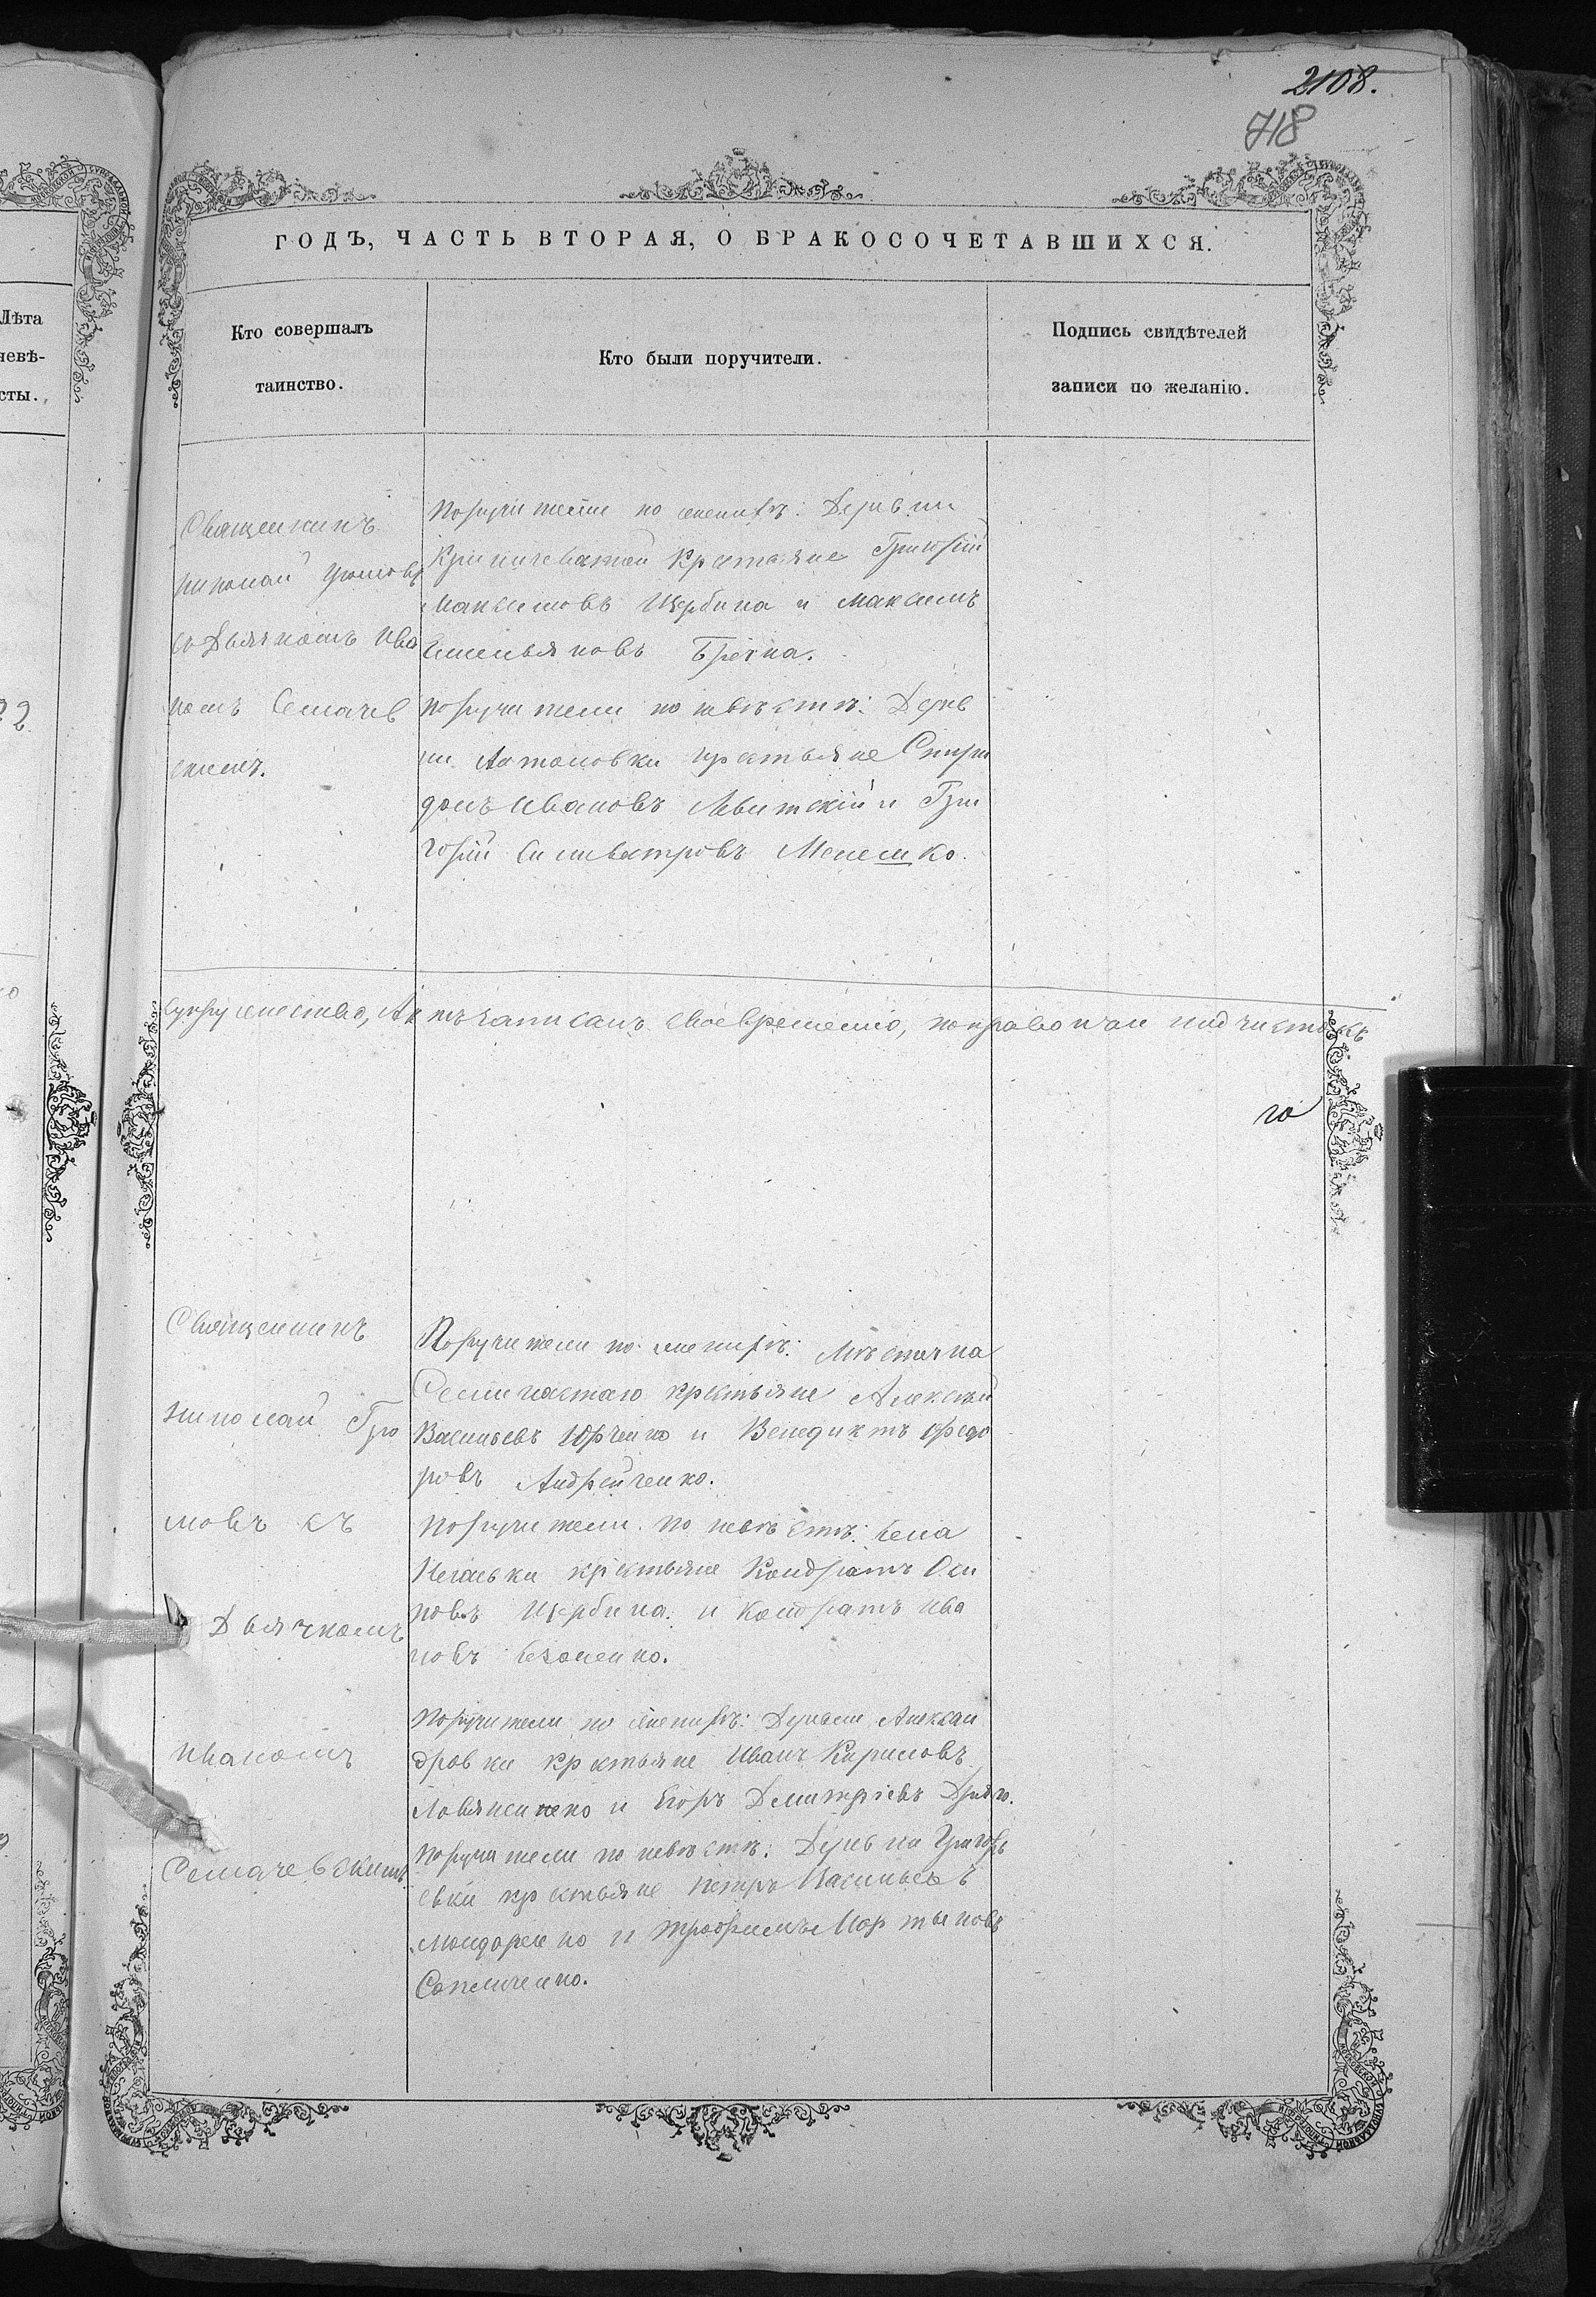 2108.
718
ГОДЪ, ЧАСТЬ ВТОРАЯ, О БРАКОСОЧЕТАВШИХСЯ.
Лѣта
невѣ-
сты.
Кто совершалъ
таинство.
Кто были поручители.
Подпись свидѣтелей
записи по желанію.
22
Священникъ
Николай Громовъ
съ Дьячкомъ Ива
номъ Семачев
скимъ.
Поручители по женихѣ: Деревни
Криничеватой Крестьяне Григорій
Максимовъ Щербина и Максимъ
Емельяновъ Брехна.
поручители по невѣстѣ: Дерев
ни Антоновки крестьяне Спири
донъ Ивановъ Левитскій и Гри
горій Силивестровъ Мелешко.
супружество, Актъ записанъ своевременно, поправо чи подчистокъ
Священникъ
Николай Гро
мовъ съ
Дьячкомъ
Иваномъ
Семачевскимъ
Поручители по женихѣ: Мѣстечка
Семинастаго крестьяне Алексѣй
Васильевъ Юрченко и Венедиктъ Федо
ровъ Андрейченко.
поручители по невѣстѣ: Села
крестьяне Кондратъ Оси
повъ Щербина и Кондратъ Ива
новъ
Поручители по женихѣ: Деревни Алексан
дровки крестьяне Иванъ Кириловъ
и Егоръ Дмитріевъ
поручители по невѣстѣ: Деревни Григорь
евки крестьяне Петръ Васильевъ
и Трофимъ Мартыновъ